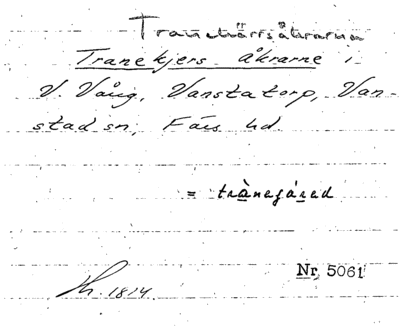 Tranekärrsåkrarna
Tranekjers åkrarne i
V. Vång, Vanstatorp, Van-
stad sn, Färs hd.
= trànejáred
Nr 5061
Lh. 1814.